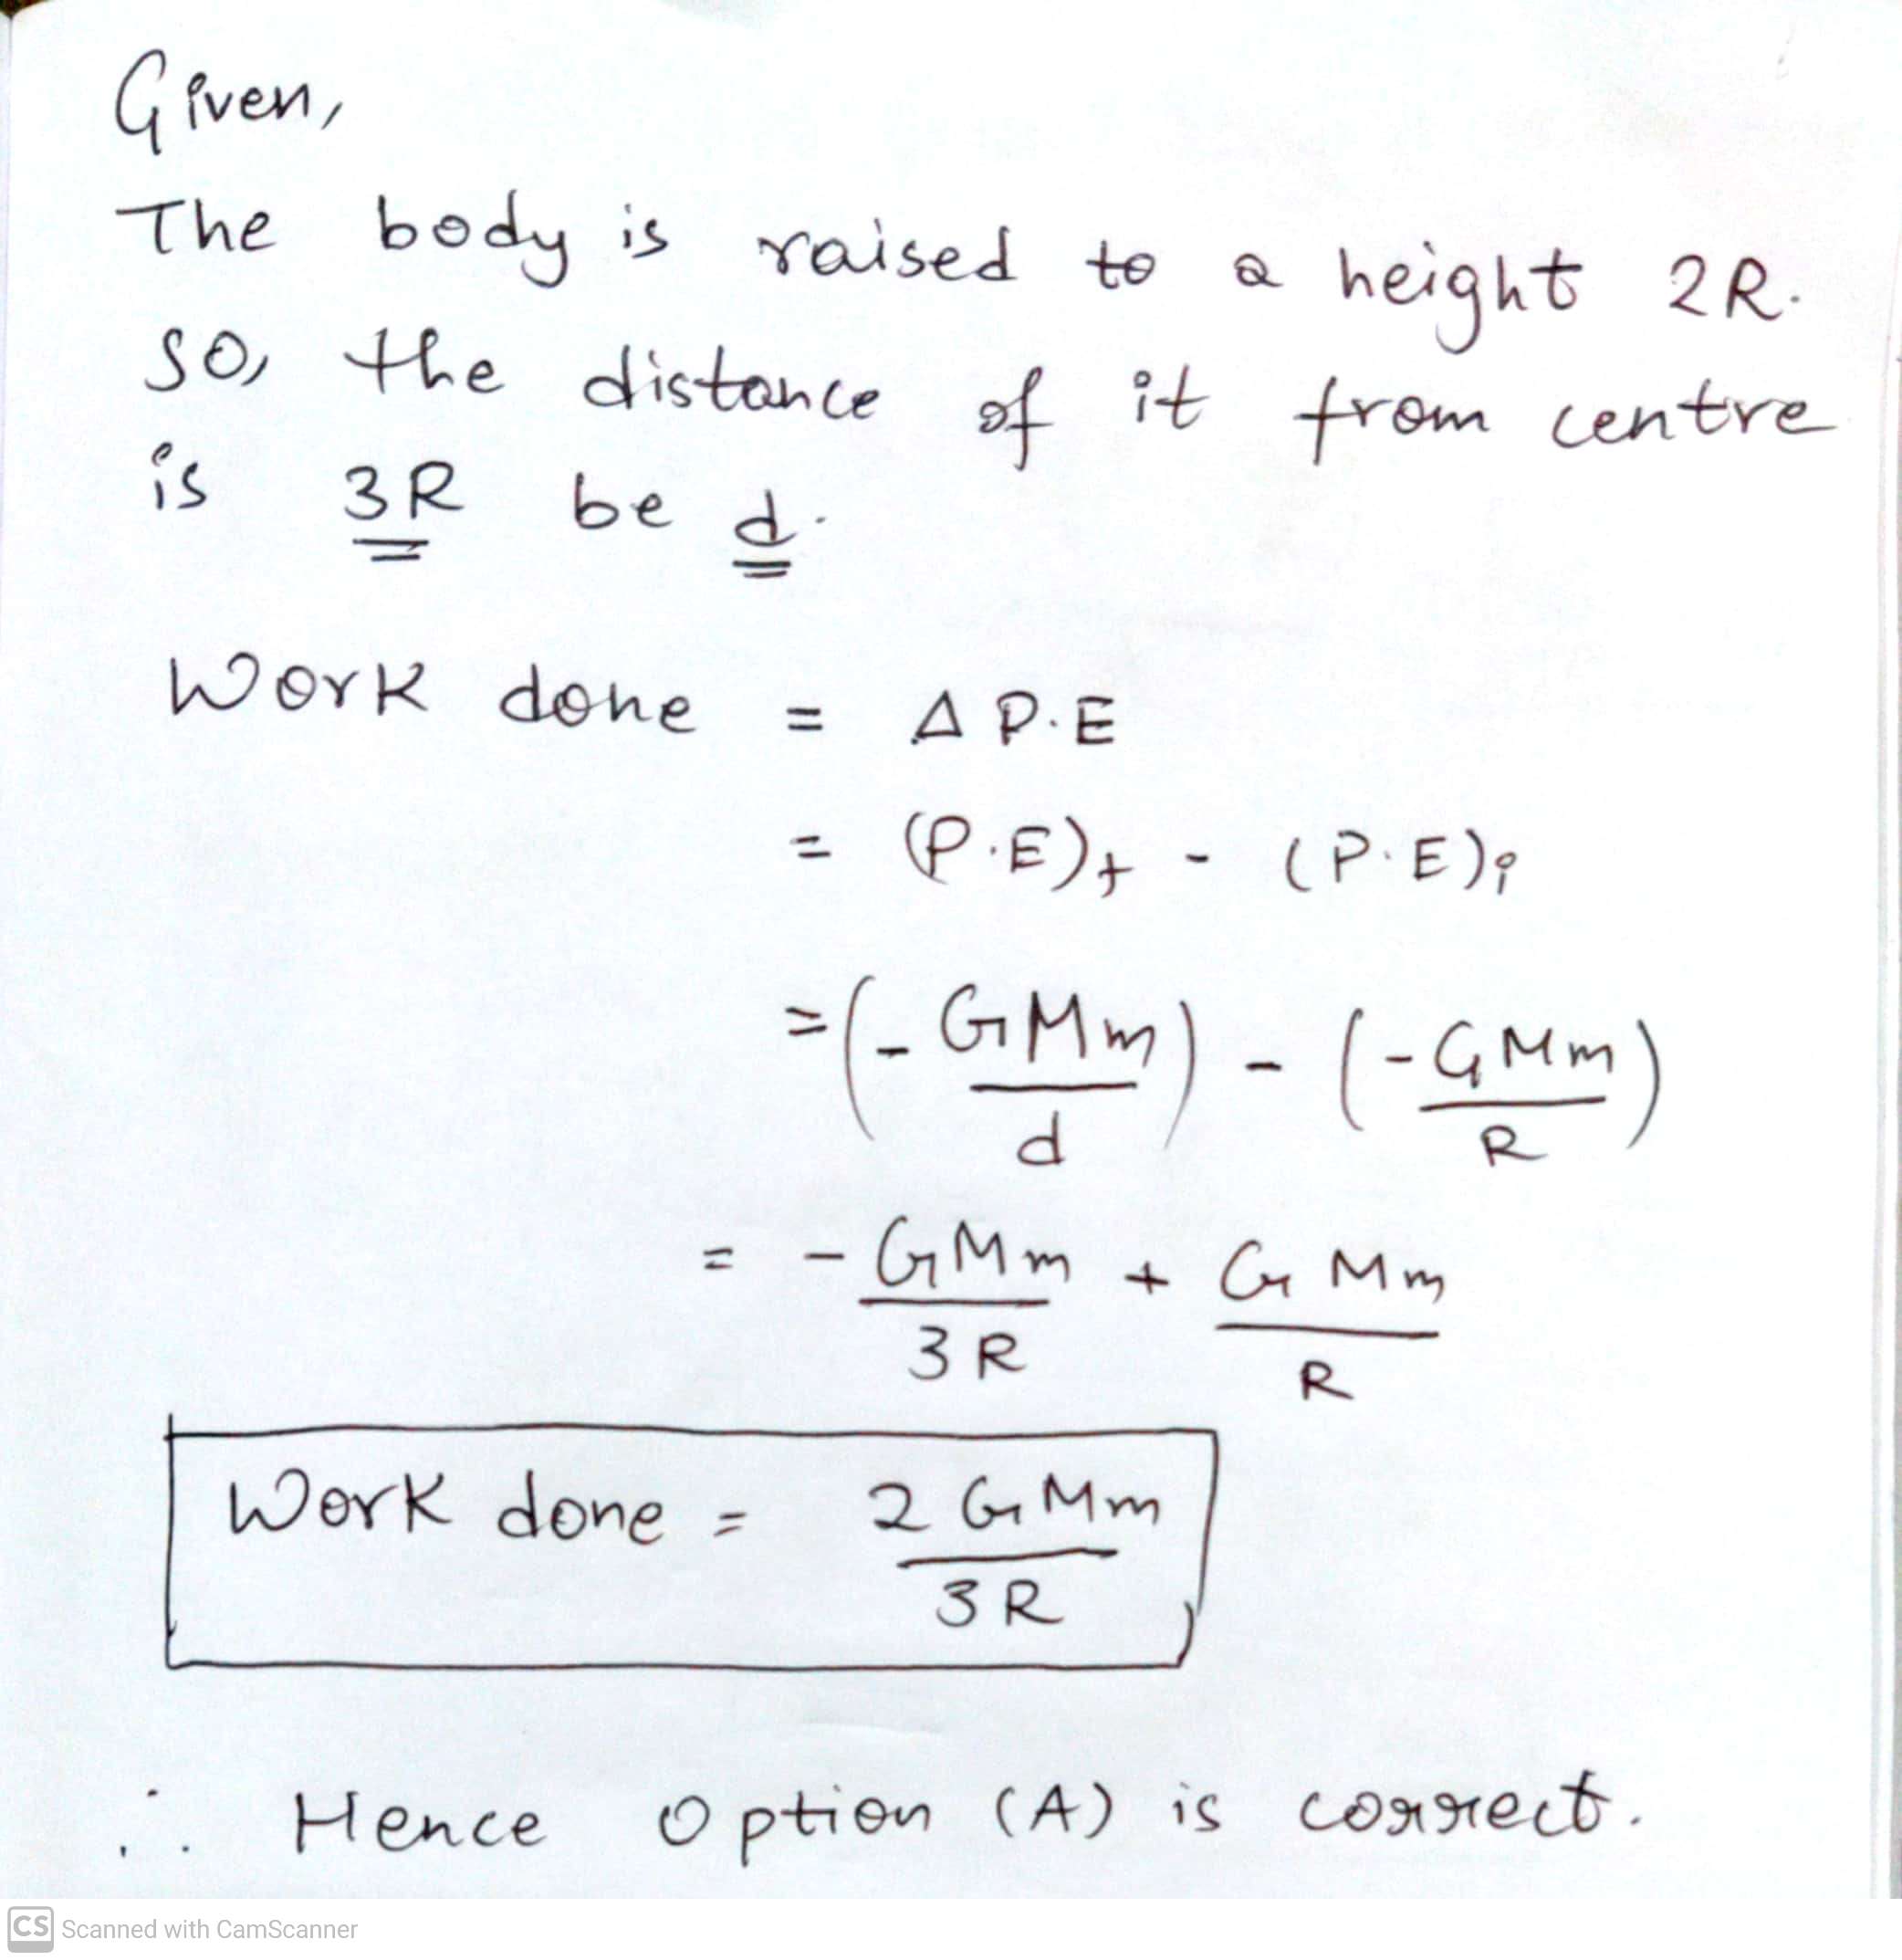 Given,
The body is raised to a height 2R.
so, the distance of it from centre
is 3R be d.
Work done = Δ P.E
= (P.E)f - (P.E)i
= (- GMm/d) - (-GMm/R)
= - GMm/3R + GMm/R
Work done = 2GMm/3R
∴ Hence Option (A) is correct.
CS Scanned with CamScanner